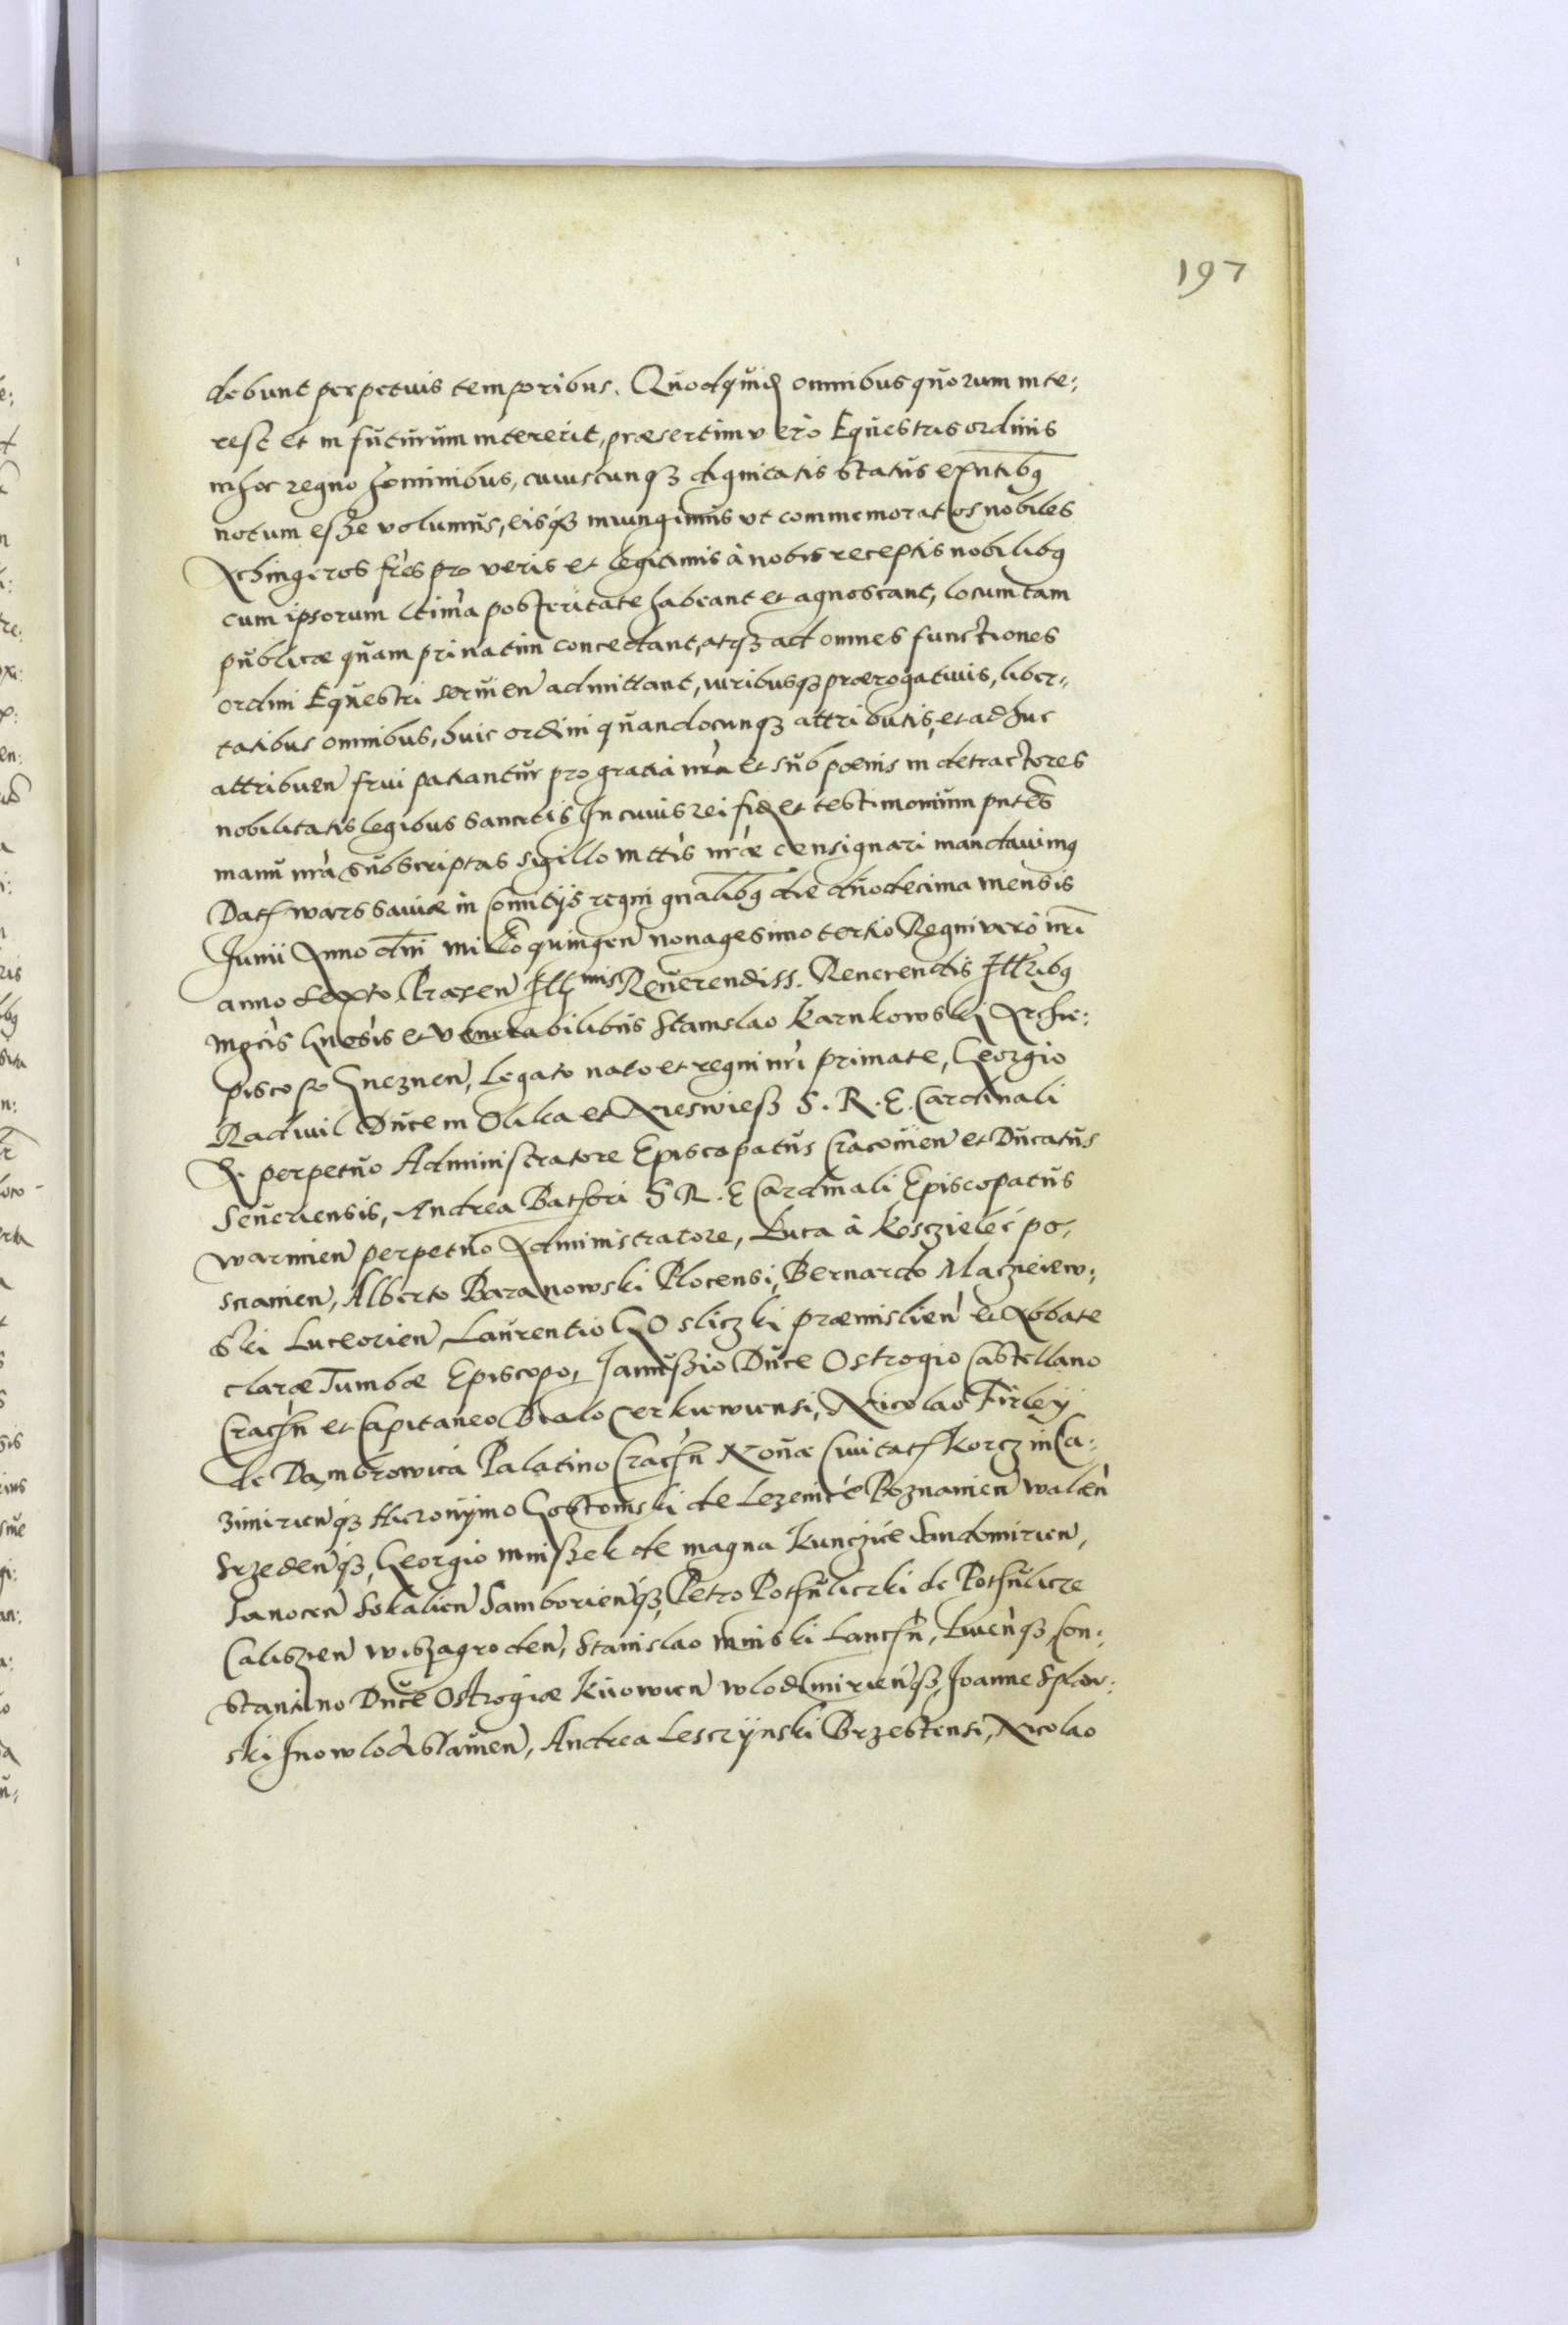 197
debunt perpetuis temporibus. Quodquid omnibus quorum inte:
rest et in futurum intererit, præsertim vero Equestris ordinis
in hoc regno hominibus, cuiuscunqꝫ dignitatis status exñtibꝫ
notum esse volumus, eisqꝫ iniungimus vt commemoratos nobiles
Achingeros frẽs pro veris et legitimis à nobis receptis nobilibꝫ
cum ipsorum ltima posteritate habeant et agnoscant, locum tam
publicæ quam priuatim concedant, atqꝫ ad omnes functiones
ordini Equestri seruien̄ admittant, iuribusqꝫ prærogatiuis, liber:
tatibus omnibus, huic ordini quandocunqꝫ attributis, et adhuc
attribuen̄ frui patiantur pro gratia nr̃a et sub poenis in detractores
nobilitatis legibus sancitis In cuius rei fidẽ et testimonium pñtes
manu nr̃a subscriptas sigillo mttis nr̃æ consignari mandauimꝫ
Datt warssauiæ in Comitijs regni gnãlibꝫ die duodecima mensis
Junii Anno dñi millõ quingen̄ nonagesimo tertio Regni vero nr̃i
anno sexto. Præsen̄ Illmis Reuerendiss. Reuerendis Illribꝫ
mgcis Gnẽsis et venerabilibus Stanislao Karnkowskj Archie:
piscopo Gneznen̄, Legato nato et regni nr̃i primate, Georgio
Radiuil Duce in Olika et Nieswiess S. R. E. Cardinali
perpetuo Administratore Episcopatus Cracouien̄ et Ducatus
Seueriensis, Andrea Bathori S R. E Cardinali Episcopatus
warmien̄ perpetuo Administratore, Luca à Kosczieleć po:
snanien̄, Alberto Baranowski Plocensi, Bernardo Maczieiew:
ski Luceorien̄, Laurentio GOsliczki præmislien̄ et Abbate
claræ Tumbæ Episcopo, Janussio Duce Ostrogio Castellano
Cracſn̄ et Capitaneo Bialocerkiewiensi, Nicolao Firleÿ
de Dambrowica Palatino Cracſn̄ Nouæ Ciuitatſ Korczin Ca:
zimirien̄qꝫ Hieronÿmo Gostomski de Lezenicé Poznanien̄ walcen̄
Srzeden̄qꝫ, Georgio mniszek de magna Kunczicé Sandomirien̄,
Sanocen̄ Sokalien̄ Samborien̄qꝫ, Petro Pothuliczki de Pothulicze
Caliszien̄ wiszagroden̄, Stanislao minski Lancſn̄, Liuen̄qꝫ Con:
stantino Duce Ostrogiæ Kiiowien̄ wlodimirien̄qꝫ, Joanne Splaw:
ski Jnowlodislauien̄, Andrea Lesczÿnski Brzestensi, Nicolao